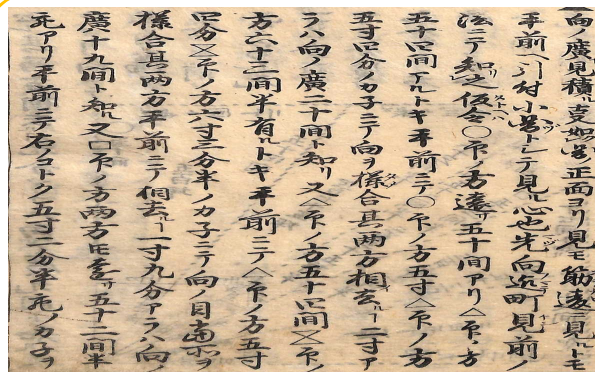 向ノ廣見積ル㕝如図正面ヨリ見モ筋違ニ見ルトモ
手前ヘ引付小図トシテ見ル心也先向近町見前ノ
法ニテ知之仮令〇印ノ方遠サ五十間アリ△印ノ方
五十四間アルトキ手前ニテ〇印ノ方五寸△印ノ方
五寸四分ノカ子ニテ向ヲ様合其両方相去ル一二寸ア
ラハ向ノ廣二十間ト知ル又△印ノ方五十四間╳印ノ
方六十三間半有ルトキ手前ニテ△印ノ方五寸
四分╳印ノ方六寸三分半ノカ子ニテ向ノ目当所ヲ
様合其両方手前ニテ相去ル一寸九分アラハ向ノ
廣十九間ト知ル又口印ノ方両方ヒ遠サ五十二間半
アリ手前ニテ右ノコトク五寸二分半ノカ子ヲ